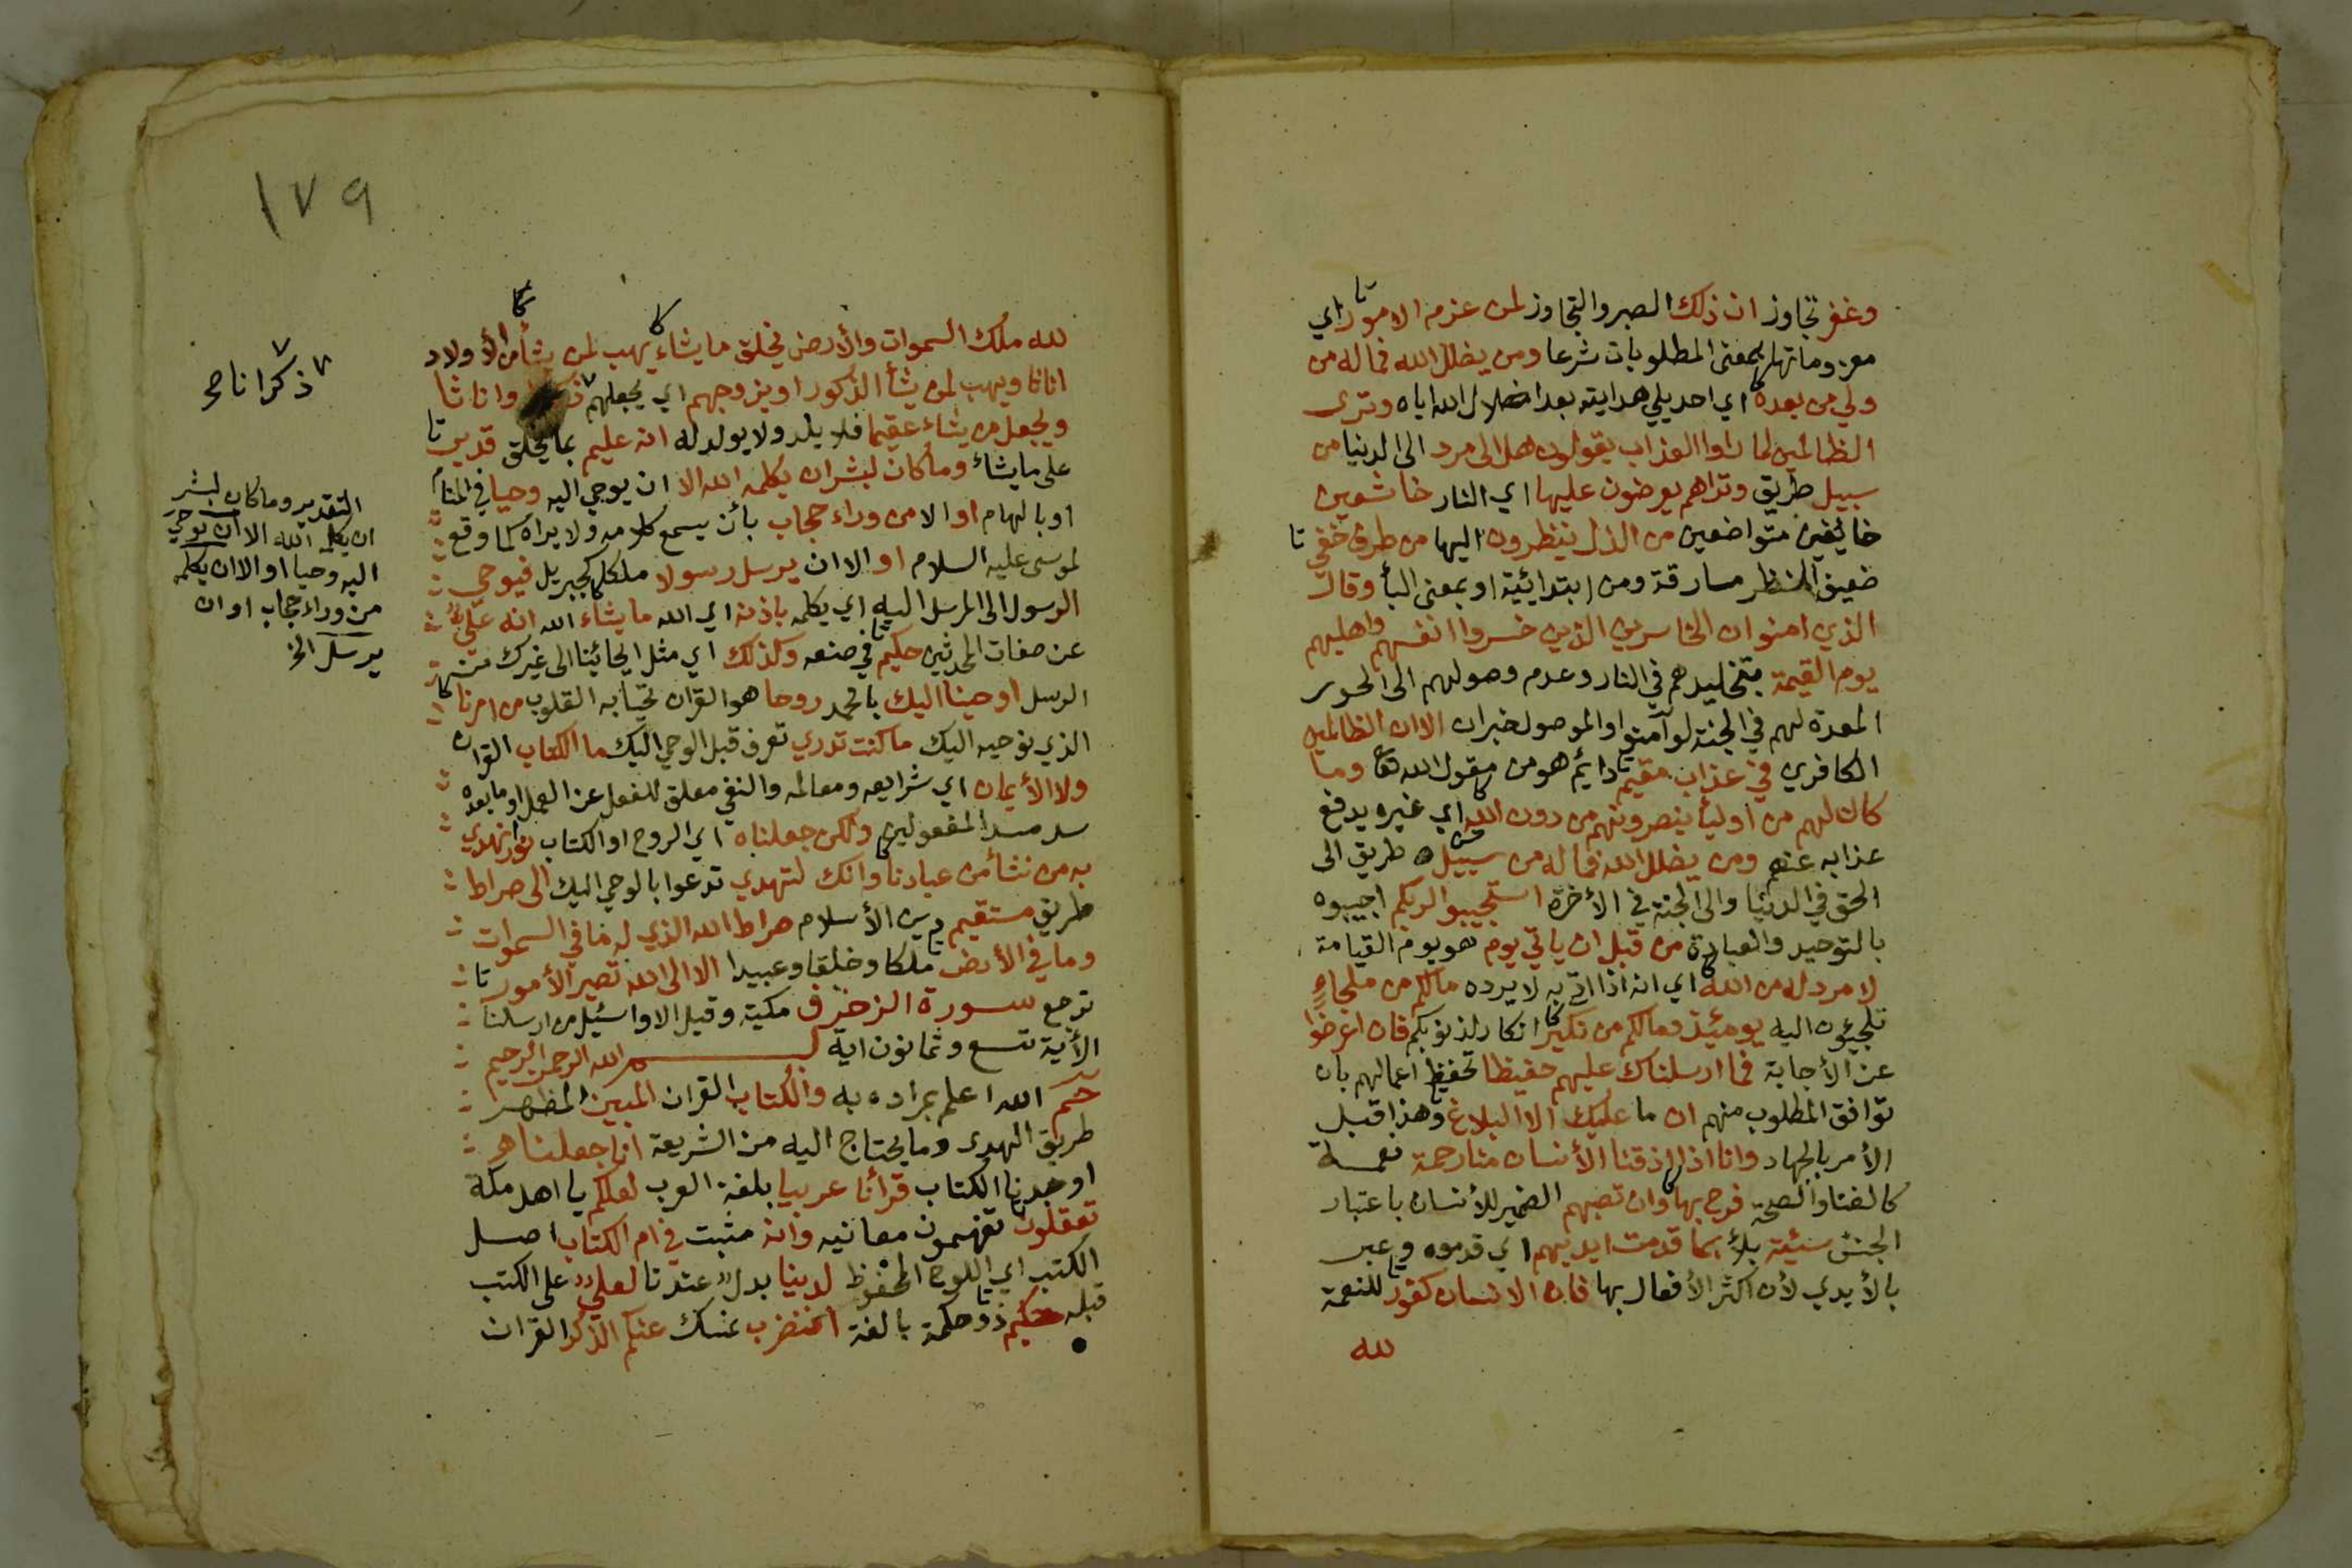 وغفر تجاوز ان ذلك الصبر والتجاوز لمن عزم الامور اي
معزوماتها بمعنى المطلوبات شرعا ومن يضلل الله فما له من
ولي من بعده اي احد يلي هدايته بعد اضلال الله اياه وترى
الظالمين لما راوا العذاب يقولون هل الى مرد الى الدنيا من
سبيل طريق وتراهم يعرضون عليها اي النار خاشعين
خائفين متواضعين من الذل ينظرون اليها من طرف خفي
ضعيف النظر مسارقة ومن ابتدائية او بمعنى البأ وقال
الذين امنوا ان الخاسرين الذين خسروا انفسهم واهليهم
يوم القيمة بتخليدهم في النار وعدم وصولهم الى الحور
المعدة لهم في الجنة لو آمنوا والموصول خبر ان الا ان الظالمين
الكافرين في عذاب مقيم دائم هو من مقول الله تعا وما
كان لهم من اوليأ ينصرونهم من دون الله اي غيره يدفع
عذابه عنهم ومن يضلل الله فما له من سبيل طريق الى
الحق في الدنيا والى الجنة في الأخرة استجيبوا لربكم اجيبوه
بالتوحيد والعبادة من قبل ان ياتي يوم هو يوم القيامة
لا مرد له من الله اي انه اذا اتى به لا يرده مالكم من ملجاء
تلجئون اليه يومئذ ومالكم من نكير انكار لذنوبكم فان اعرضوا
عن الأجابة فما ارسلناك عليهم حفيظا تحفظ اعمالهم بان
توافق المطلوب منهم ان ما عليك الا البلاغ وهذا قبل
الأمر بالجهاد وانا اذا اذقنا الأنسان منا رحمة نعمة
كالغنا والصحة فرح بها وان تصبهم الضمير للأنسان باعتبار
الجنس سيئة بلأ بما قدمت ايديهم اي قدموه وعبر
بالأيدي لأن اكثر الأفعال بها فان الانسان كفور للنعمة
لله
١٧٩
لله ملك السموات والأرض يخلق ما يشاء يهب لمن يشأ من الأولاد
اناثا ويهب لمن يشأ الذكور او يزوجهم اي يجعلهم واناثا
ويجعل من يشاء عقيما فلا يلد ولا يولد له انه عليم بما يخلق قدير
على ما يشاء وما كان لبشر ان يكلمه الله الا ان يوحي اليه وحيا في المنام
او بالهام او الا من وراء حجاب بأن يسمع كلامه ولا يراه كما وقع
لموسى عليه السلام او الا ان يرسل رسولا ملكا كجبريل فيوحي
الرسول الى المرسل اليه اي يكلمه باذنه اي الله ما يشاء الله انه علي
عن صفات المحدثين حكيم في صنعه وكذلك اي مثل ايحائنا الى غيرك من
الرسل اوحينا اليك يا محمد روحا هو القران تحيا به القلوب من امرنا
الذي نوحيه اليك ما كنت تدري تعرف قبل الوحي اليك ما الكتاب القران
ولا الأيمان اي شرايعه ومعالمه والنفي معلق للفعل عن العمل او ما بعده
سد مسد المفعولين ولكن جعلناه اي الروح او الكتاب نورا نهدي
به من نشأ من عبادنا وانك لتهدي تدعوا بالوحي اليك الى صراط
طريق مستقيم دين الأسلام صراط الله الذي له ما في السموات
وما في الأرض ملكا وخلقا وعبيدا الا الى الله تصير الأمور
ترجع سورة الزخرف مكية وقيل الا واسئل من ارسلنا
الأية تسع وثمانون اية بسم الله الرحمن الرحيم
حم الله اعلم بمراده به والكتاب القران المبين المظهر
طريق الهدى وما يحتاج اليه من الشريعة انا جعلناه
اوجدنا الكتاب قرأنا عربيا بلغة العرب لعلكم يا اهل مكة
تعقلون تفهمون معانيه وانه مثبت في ام الكتاب اصل
الكتب اي اللوح المحفوظ لدينا بدل عندنا لعلي على الكتب
قبله حكيم ذو حكمة بالغة افنضرب نمسك عنكم الذكر القران
ذكرانا صح
التقدير وما كان لبشر
ان يكلمه الله الا ان يوحي
اليه وحيا او الا ان يكلمه
من وراء حجاب او ان
يرسل الخ